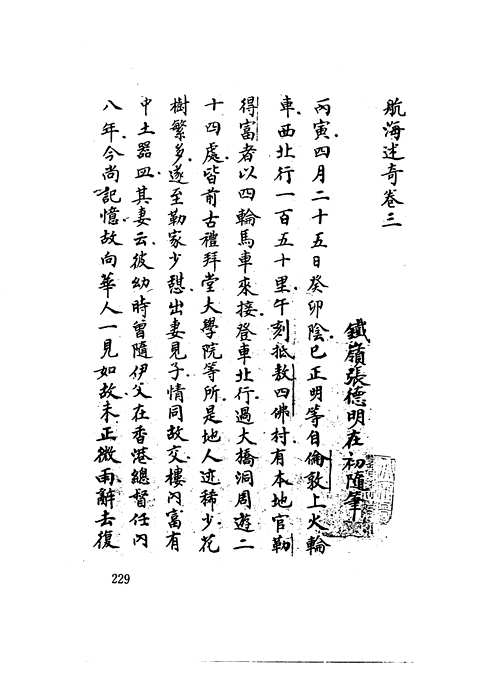 航海述奇卷三
鐵嶺張德明在初隨筆
丙寅四月二十五日癸卯陰巳正明等自倫敦上火輪
車西北行一百五十里午刻抵敖四佛村有本地官勒
得富者以四輪馬車來接登車北行過大橋洞周遊二
十四處皆前古禮拜堂大學院等所是地人迹稀少花
樹繁多遂至勒家少憇出妻見子情同故交樓內富有
中土器皿其妻云彼幼時曾隨伊父在香港總督任內
八年今尚記憶故向華人一見如故未正微雨辭去復
229